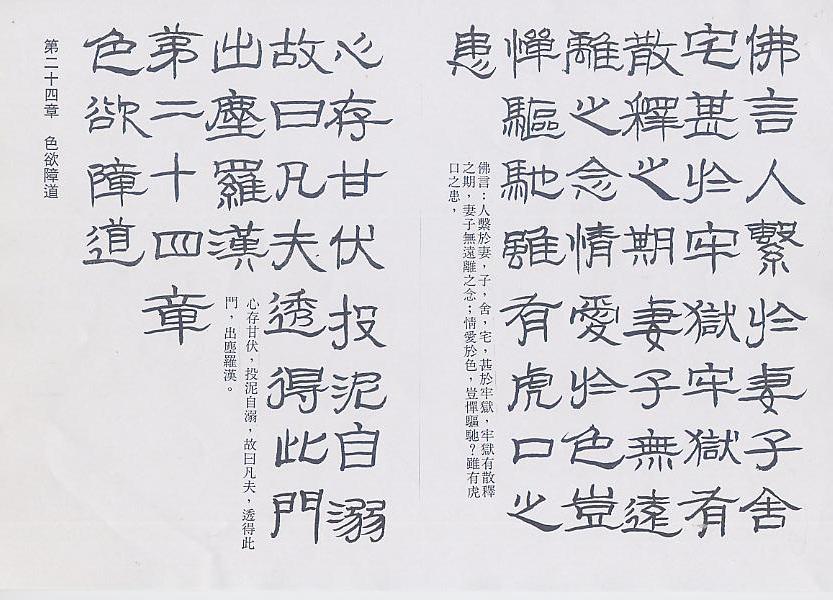 佛言人繫於妻子舍
宅甚於牢獄牢獄有
散釋之期妻子無遠
離之念情愛於色豈
憚驅馳雖有虎口之
患
佛言：人繫於妻，子，舍，宅，甚於牢獄，牢獄有散釋
之期，妻子無遠離之念；情愛於色，豈憚驅馳？雖有虎
口之患，
心存甘伏投泥自溺
故曰凡夫透得此門
出塵羅漢
心存甘伏，投泥自溺，故曰凡夫，透得此
門，出塵羅漢。
第二十四章
色欲障道
第二十四章　色欲障道